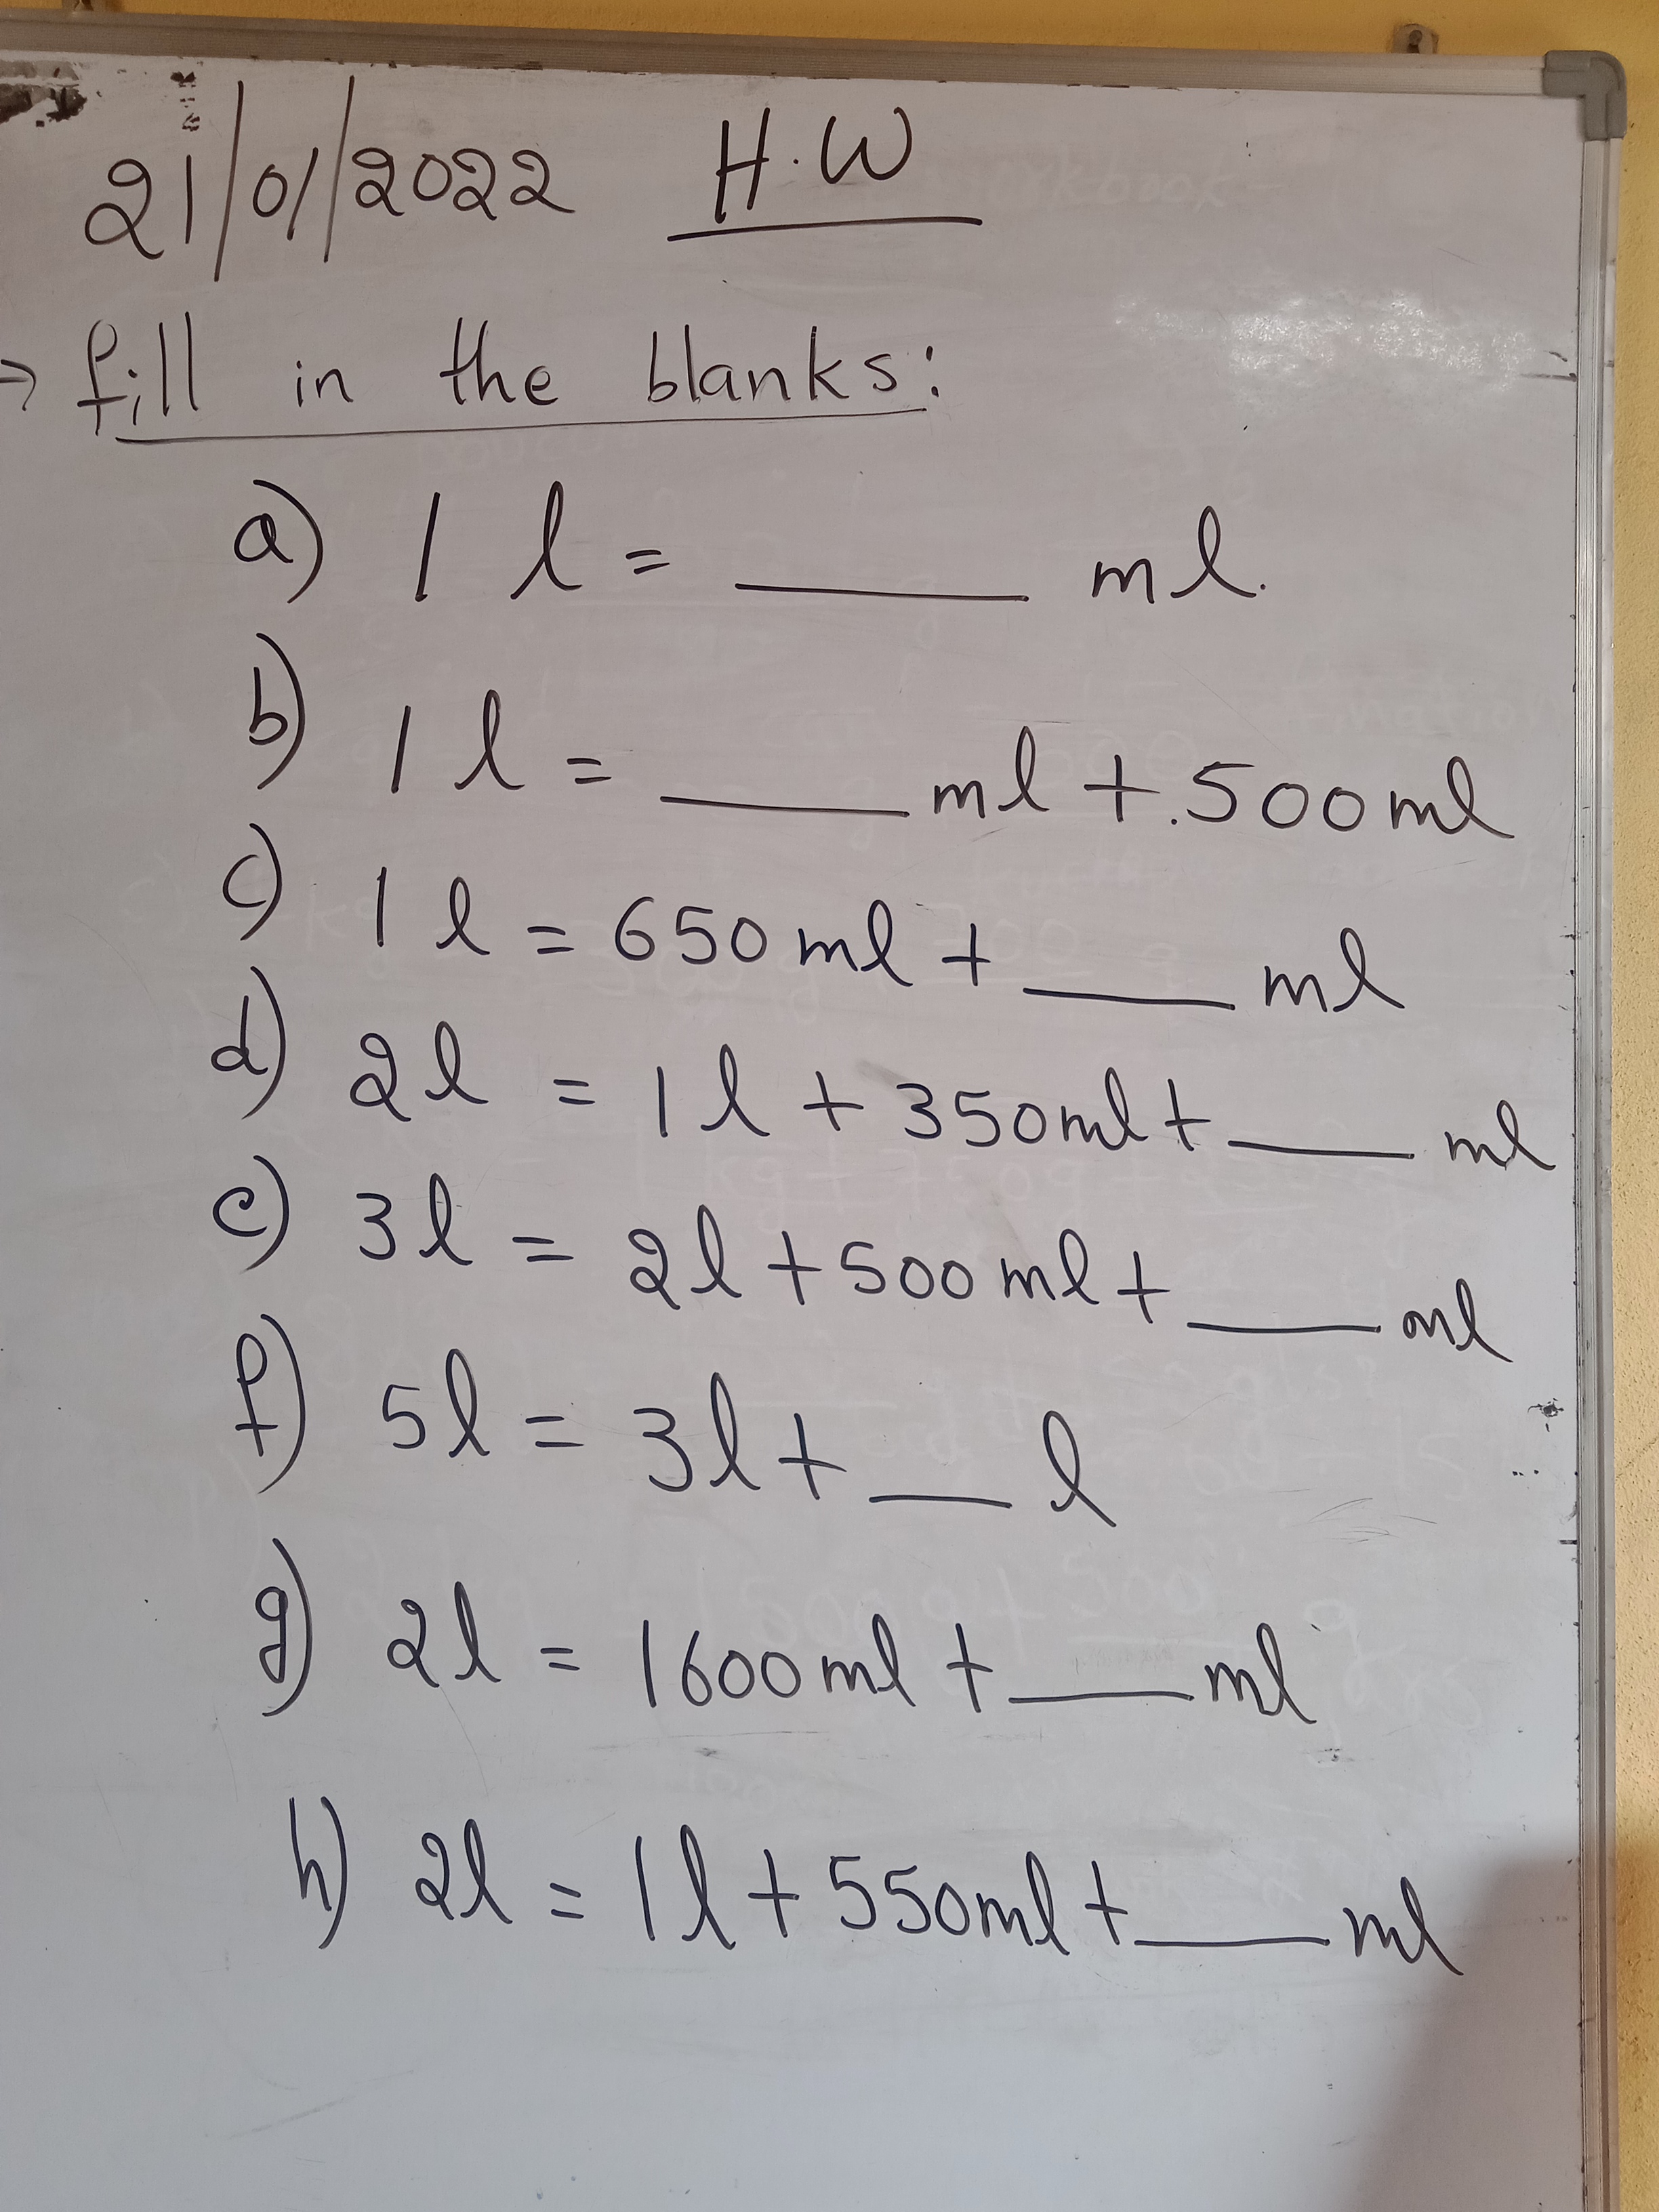 21/01/2022 H.W
→ fill in the blanks:
a) 1 l = ____ ml.
b) 1 l = ____ ml + 500 ml
c) 1 l = 650 ml + ____ ml
d) 2l = 1 l + 350ml + ____ ml
e) 3l = 2l + 500 ml + ____ ml
f) 5l = 3l + __ l
g) 2l = 1600 ml + ____ ml
h) 2l = 1l + 550ml + ____ ml